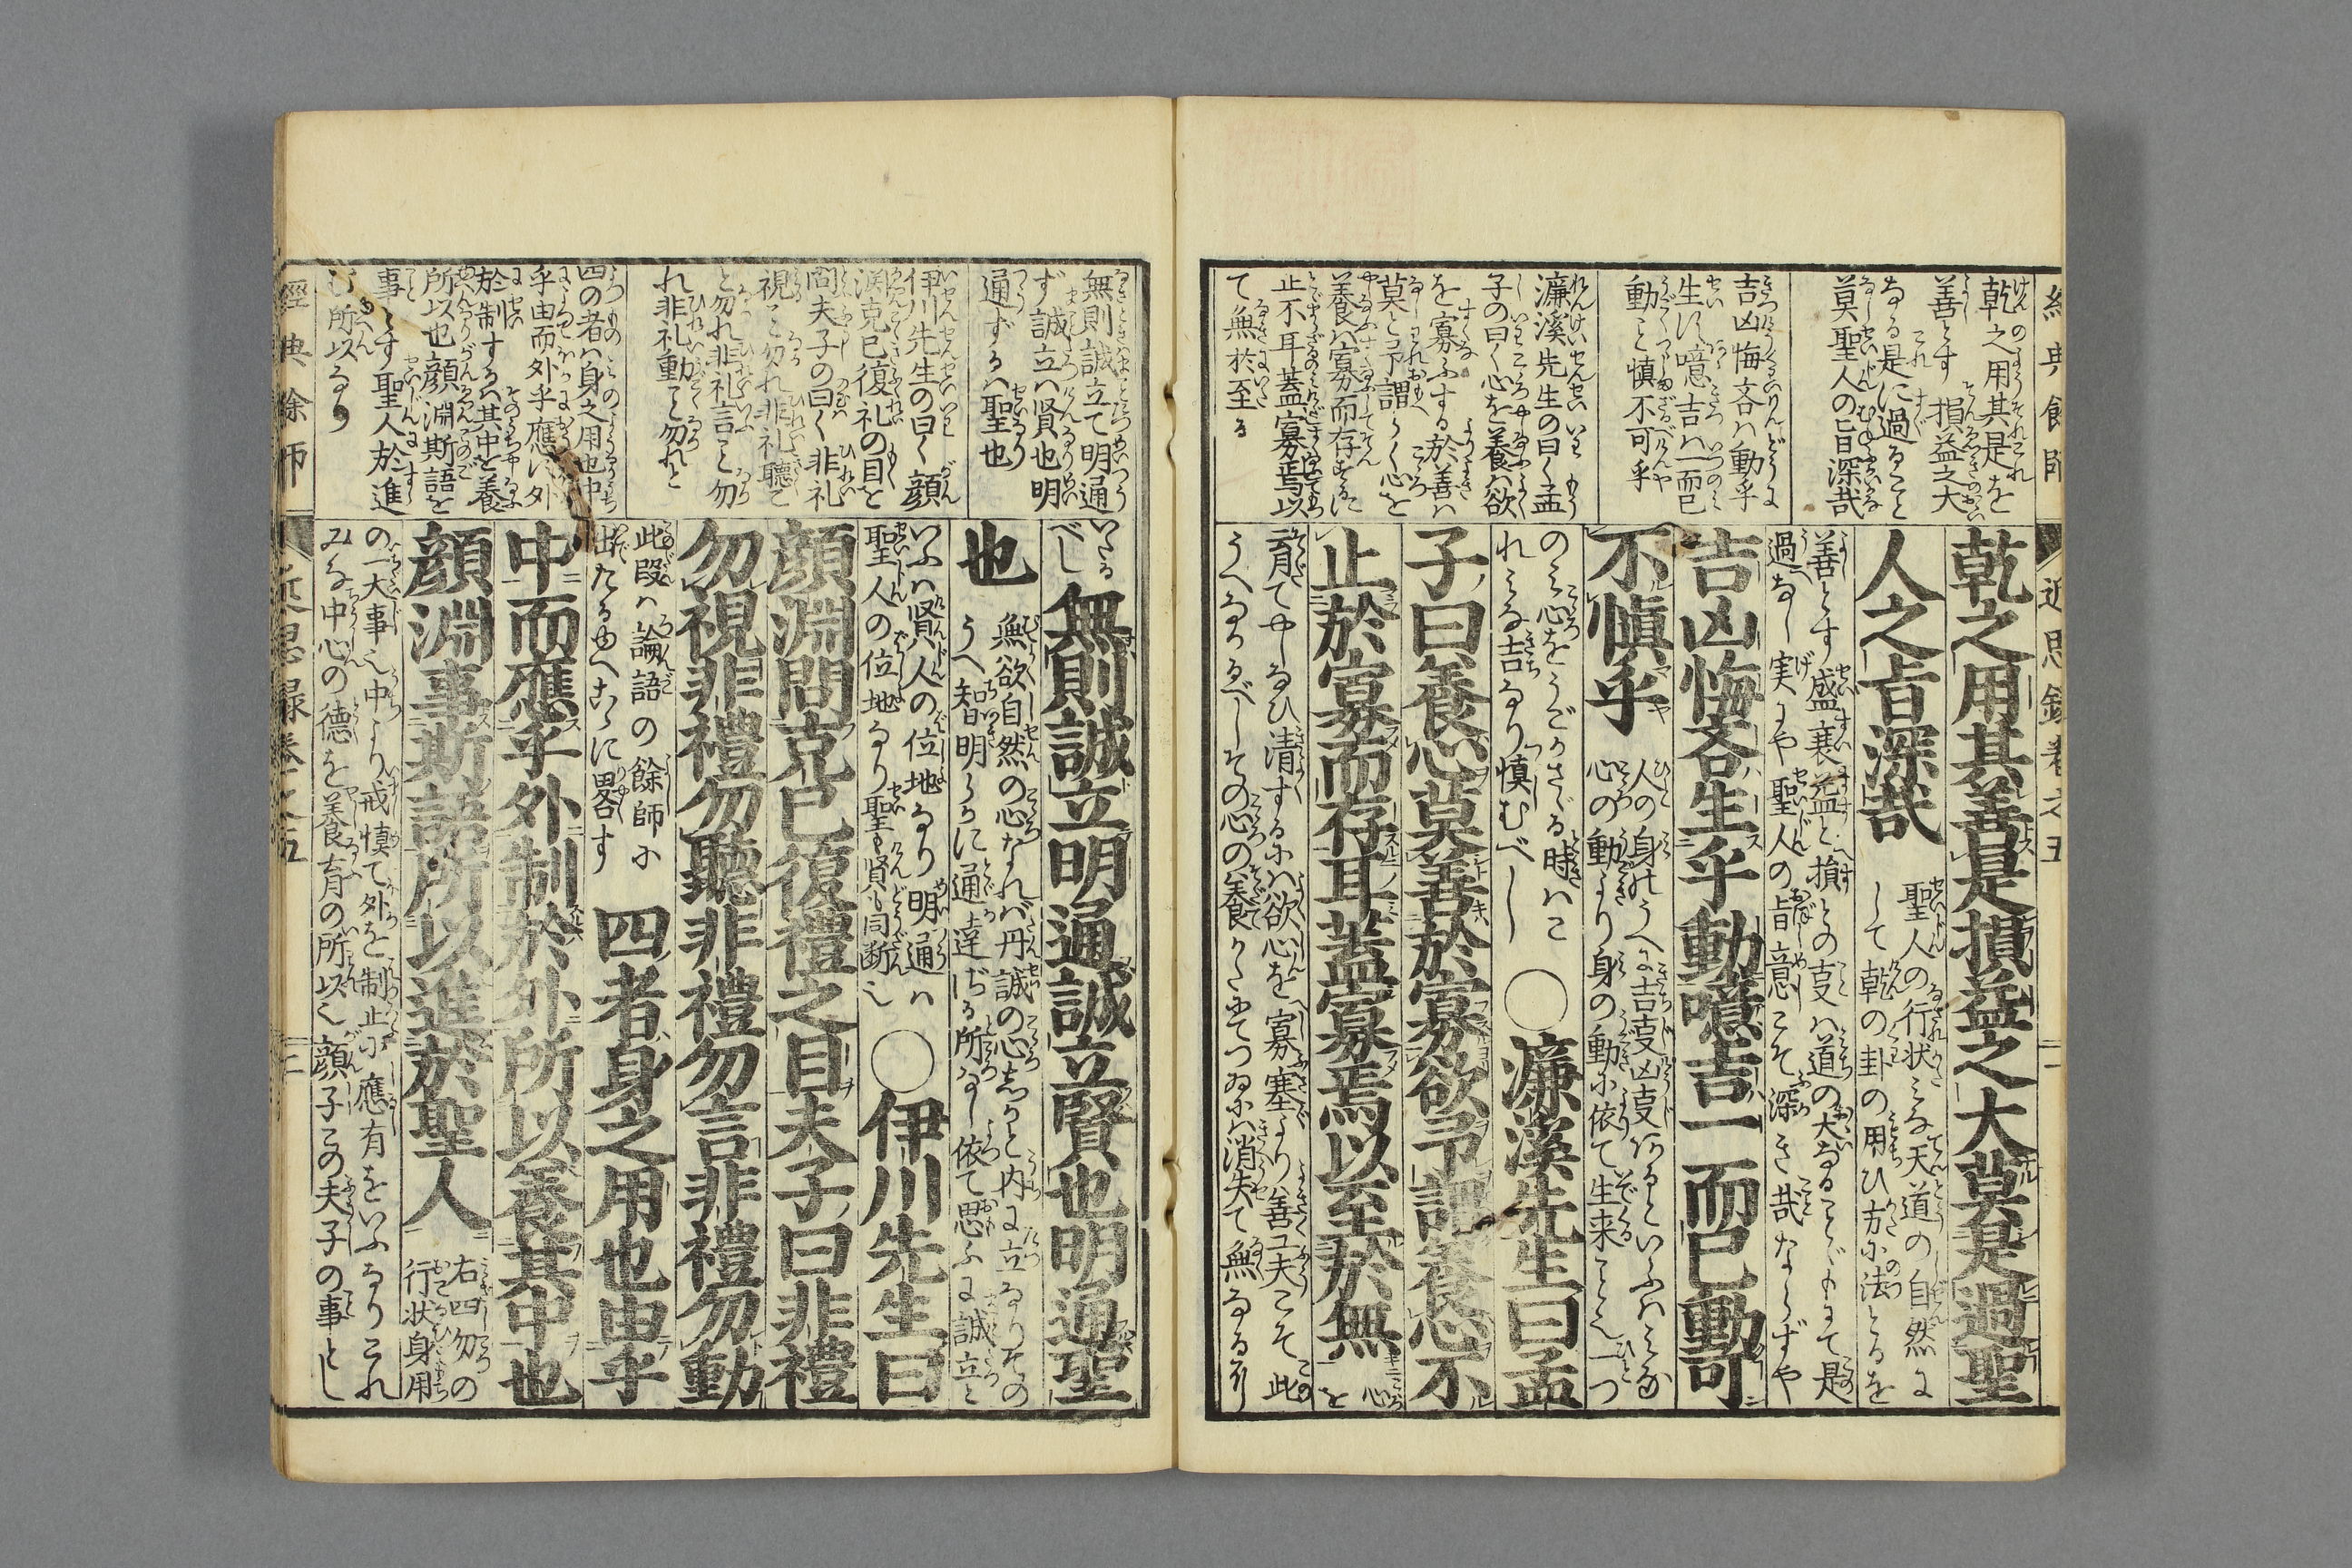 經典餘師
近思録卷之五
二
乾之用其是を
善とす損益之大
なる是に過ることなし
莫聖人の旨深哉
吉凶悔吝ハ動乎
生に噫吉ハ一而已
動こと慎不可乎
濂溪先生の曰く孟
子の曰く心を養ハ欲
を寡ふする於善ハ
莫と予謂らく心を
養ハ寡而存するに
止不耳蓋寡焉以
て無於至る
乾之用其善是損益之大莫是過聖
人之旨深哉
聖人の行状ミな天道の自然に
して乾の卦の用ひ方に法とるを
善とす盛衰益と損との支ハ道の大なることどもにて是
過なし実にや聖人の旨意こそ深き哉ならずや
吉凶悔吝生乎動噫吉一而已動可
不慎乎
人の身のうへに吉支凶支あるといふハミな
心の動より身の動に依て生来こと也一つ
の心をうごかさゞる時ハこ
れミな吉なり慎むべし
○濂溪先生曰孟
子曰養心莫善於寡欲予謂養心不
止於寡而存耳蓋寡焉以至於無
心を
育てやしなひ清するにハ欲心を寡塞より善工夫こそ此
うへなかるべしその心の養かた至てつゐにハ消失て無なるなり
無則誠立て明通
ず誠立ハ賢也明
通ずるハ聖也
伊川先生の曰く顔
淵克已復礼の目を
問夫子の曰く非礼
視こと勿れ非礼聽こ
と勿れ非礼言こと勿
れ非礼動こと勿れと
四の者ハ身之用也中
乎由而外乎應に外
於制するハ其中を養
所以也顔淵斯語を
事とす聖人於進
む所以なり
いたる
べし
無則誠立明通誠立賢也明通聖
也
無欲自然の心なれバ丹誠の心おのづと内に立なりその
うへ智明らかに通達ぢる所なし依て思ふに誠立と
いふハ賢人の位地なり明通ハ
聖人の位地なり聖も賢も同断也
○伊川先生曰
顔淵問克已復禮之目夫子曰非禮
勿視非禮勿聽非禮勿言非禮勿動
此段ハ論語の餘師に
出たるゆへこゝに畧す
四者身之用也由乎
中而應乎外制於外所以養其中也
顔淵事斯語所以進於聖人
右四勿の
行状身用
の一大事也中より戒慎て外を制止に應有をいふなりこれ
みな中心の德を養育の所以也顔子この夫子の事とし
經典餘師
近思録卷之五
二